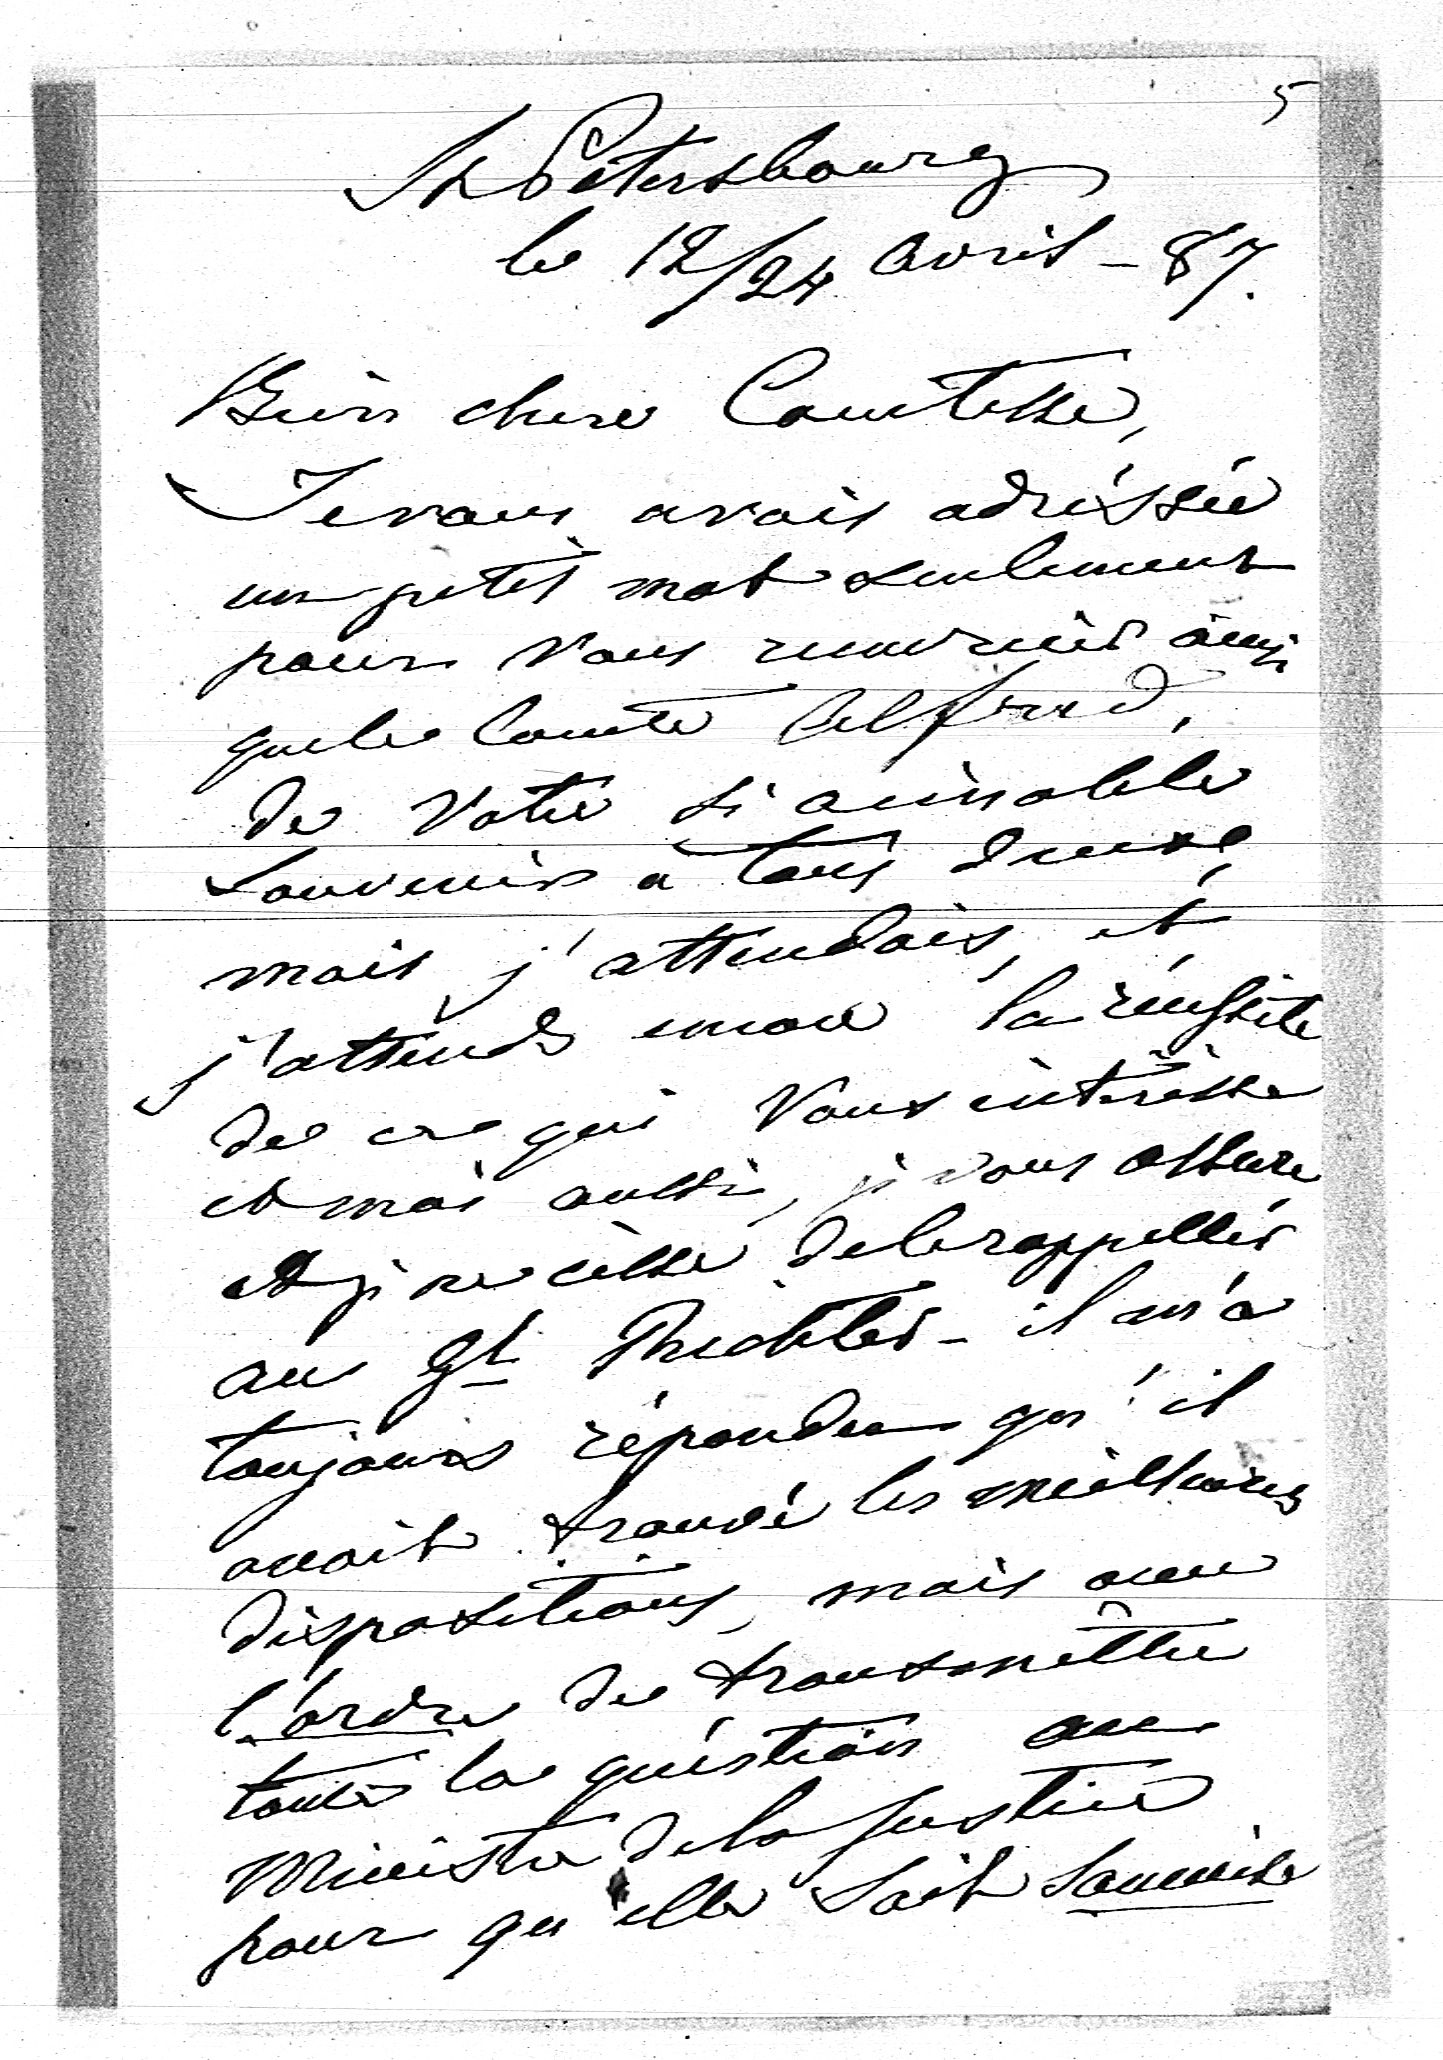 5
St Pétersbourg
le 12/24 Avril - 87.
Bien chère Comtesse,
Je vous avais adréssée
un petit mot seulement
pour Vous remercier ainsi
que le Comte Alfred,
de Votre si aimable
souvenir à tous deux,
mais j'attendais, et
j'attends encore la réussite
de ce qui Vous intéresse
et moi aussi, je vous assure
et je ne cesse de le rappeller
au Gl Richter - il m'a
toujours répondu qu'il
avait trouvé les meilleures
dispositions, mais avec
l'ordre de transmèttre
toute la quéstion au
Ministre de la Justice
pour qu'elle soit soumise